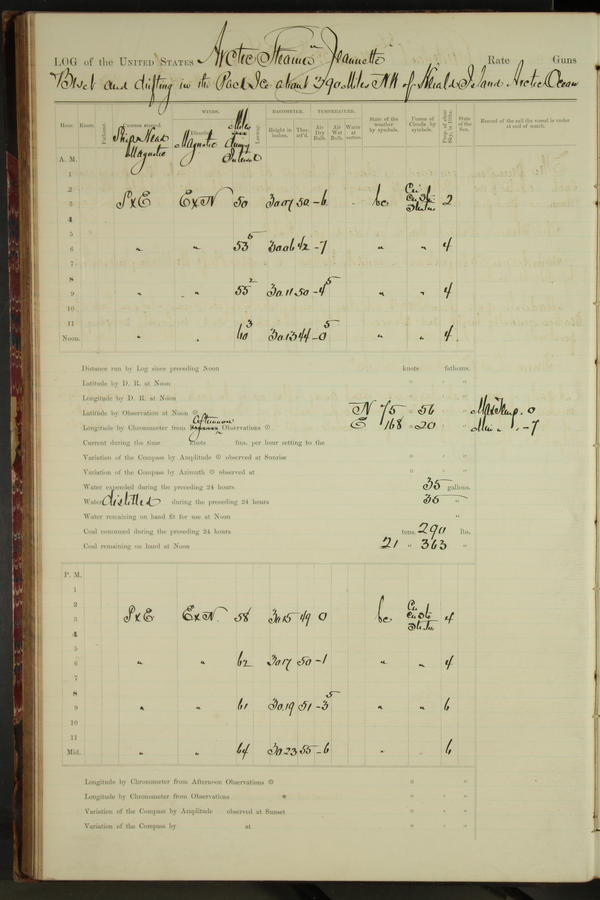 LOG of the UNITED STATES Arctic Steamer "Jeannette" Rate Guns
Beset and drifting in the Pack Ice about 390 Miles NW of Herald Island. Arctic Ocean
Hour. Knots. Fathoms. Courses steered. WINDS. Direction. Leeway. BAROMETER. Height in inches. Ther. att'd. TEMPERATURE. Air Dry Bulb. Air Wet Bulb. Water at surface. State of the weather by symbols. Forms of Clouds by symbols. Prop. of clear Sky, in 10ths. State of the Sea. Record of the sail the vessel is under at end of watch.
Ship's Head Magnetic Magnetic Miles during Interval
A. M.
1
2
3 SxE ExN 50 30.07 50 -6 bc 2
4
5
6 " " 53 5 30.06 42 -7 " " 4
7
8
9 " " 55 2 30.11 50 -4 5 " " 4
10
11
Noon. " " 60 3 30.13 44 -0 5 " " 4
Distance run by Log since preceding Noon knots fathoms.
Latitude by D. R. at Noon ° ' "
Longitude by D. R. at Noon ° ' "
Latitude by Observation at Noon ☉ N 75 ° 56 ' " Max Temp. 0
Longitude by Chronometer from Afternoon Observations ☉ E 168 ° 20 ' " Min " . -7
Current during the time knots fms. per hour setting to the
Variation of the Compass by Amplitude ☉ observed at Sunrise ° ' "
Variation of the Compass by Azimuth ☉ observed at ° ' "
Water expended during the preceding 24 hours 35 gallons.
Water distilled during the preceding 24 hours 35 "
Water remaining on hand fit for use at Noon "
Coal consumed during the preceding 24 hours tons. 290 lbs.
Coal remaining on hand at Noon 21 " 363 "
P. M.
1
2
3 SxE ExN. 58 30.15 49 0 bc 4
4
5
6 " " 62 30.17 50 -1 " " 4
7
8
9 " " 61 30.19 51 -3 5 " " 6
10
11
Mid. " " 64 30.23 55 -6 " 6
Longitude by Chronometer from Afternoon Observations ☉ ° ' "
Longitude by Chronometer from Observations * ° ' "
Variation of the Compass by Amplitude observed at Sunset ° ' "
Variation of the Compass by at ° ' "